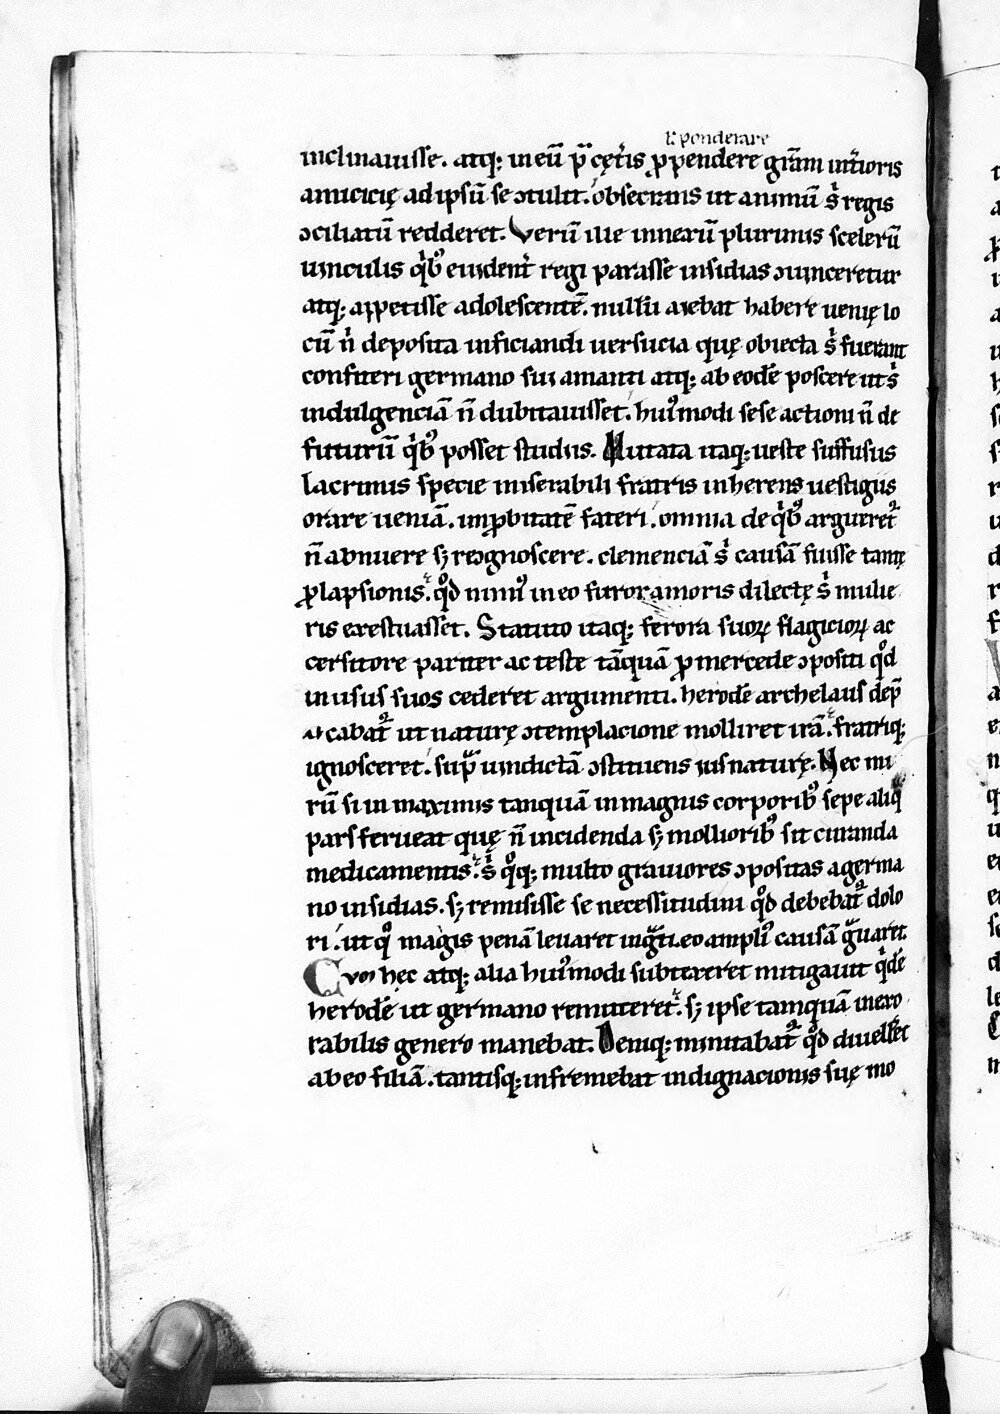 ł ponderare
inclinauisse. atq; in eū p̄ cęt̄is ꝓpendere gr̄am int̄ioris
amicicię ad ipsū se ɔtulit. obsecrans ut animū s' regis
ɔciliatū redderet. Verū ille innexū plurimis scelerū
uinculis qⁱbꝰ euident' regi parasse insidias ɔuinceretur
atq; appetisse adolescentē. nullū aiebat habere uenię lo
cū n' deposita inficiandi uersucia quę obiecta s' fuerant
confiteri germano sui amanti atq; ab eodē poscere ut s'
indulgenciā n̄ dubitauisset. huiꝰmodi sese actioni n̄ de
futurū qⁱbꝰ posset studiis. Mutata itaq; ueste suffusus
lacrimis specie miserabili fratris inherens uestigiis
orare ueniā. inꝓbitatē fateri. omnia de qⁱbꝰ argueret᷑
n̄ abnuere sꝫ reɔgnoscere. clemenciā s' causā fuisse tantę
ꝓlapsionis. qᵒd nimiꝰ in eo furor amoris dilectę s' mulie
ris exestuasset. Statuto itaq; ferora suoꝝ flagicioꝝ ac
cersitore pariter ac teste tāquā ꝓ mercede ɔpositi qᵒd
in usus suos cederet argumenti. herodē archelaus dep̄
cabat᷑ ut naturę ɔtemplacione molliret irā. fratriq;
ignosceret. supᵃ uindictā ɔstituens ius naturę. Nec mi
rū si in maximis tanquā in magnis corporibꝰ sepe aliqᵃ
pars ferueat quę n̄ incidenda sꝫ mollioribꝰ sit curanda
medicamentis. s' qᵒq; multo grauiores ɔpositas a germa
no insidias. sꝫ remisisse se necessitudini qᵒd debebat᷑ dolo
ri. ut qᵒ magis penā leuaret ingᵃti. eo ampliꝰ causā gᵃuaret.
Cvm hec atq; alia huiꝰmodi subtexeret mitigauit qⁱdē
herodē ut germano remitteret. sꝫ ipse tamquā inexo
rabilis genero manebat. Deniq; minitabat᷑ qᵒd diuelł̄et
ab eo filiā. tantisq; infremebat indignacionis suę mo